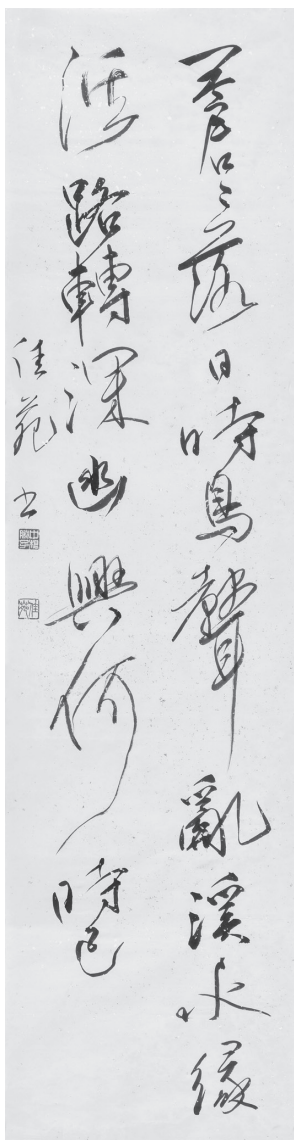 蒼々落日時鳥聲亂溪水緣
溪路轉深幽興何時已
佳苑書